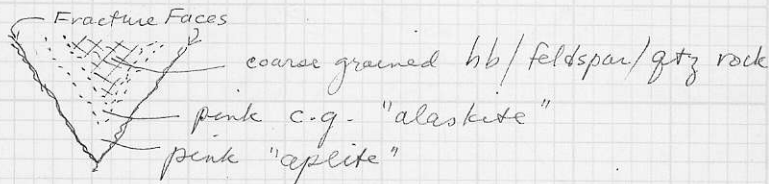 Fracture Faces
coarse grained hb/feldspar/qtz rock
pink c.g. "alaskite"
pink "aplite"